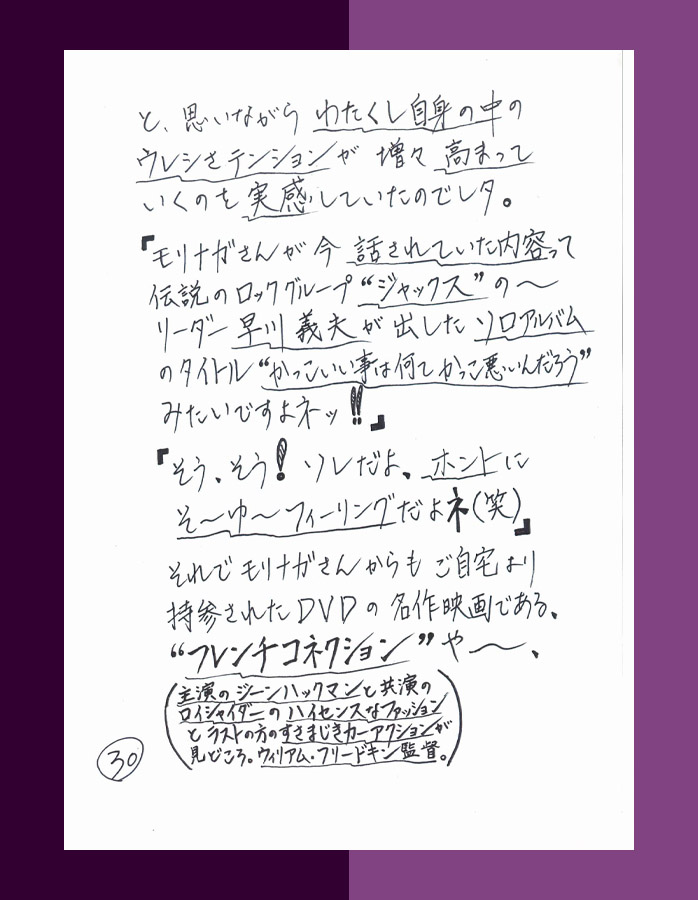 と、思いながら わたくし自身の中の
ウレシさテンションが 増々 高まって
いくのを実感していたのでしタ。
『モリナガさんが今 話されていた内容って
伝説のロックグループ“ジャックス”の〜
リーダー 早川 義夫が出したソロアルバム
のタイトル“かっこいい事は何てかっこ悪いんだろう”
みたいですよネッ!!』
『そう、そう! ソレだよ、ホントに
そ〜ゆ〜フィーリングだよネ(笑)』
それで モリナガさんからも ご自宅より
持参されたDVDの 名作映画である、
“フレンチコネクション”や〜、
(主演のジーンハックマンと共演の
ロイシャイダーのハイセンスなファッション
とラストの方のすさまじきカーアクションが
見どころ。ウィリアム・フリードキン監督。)
30